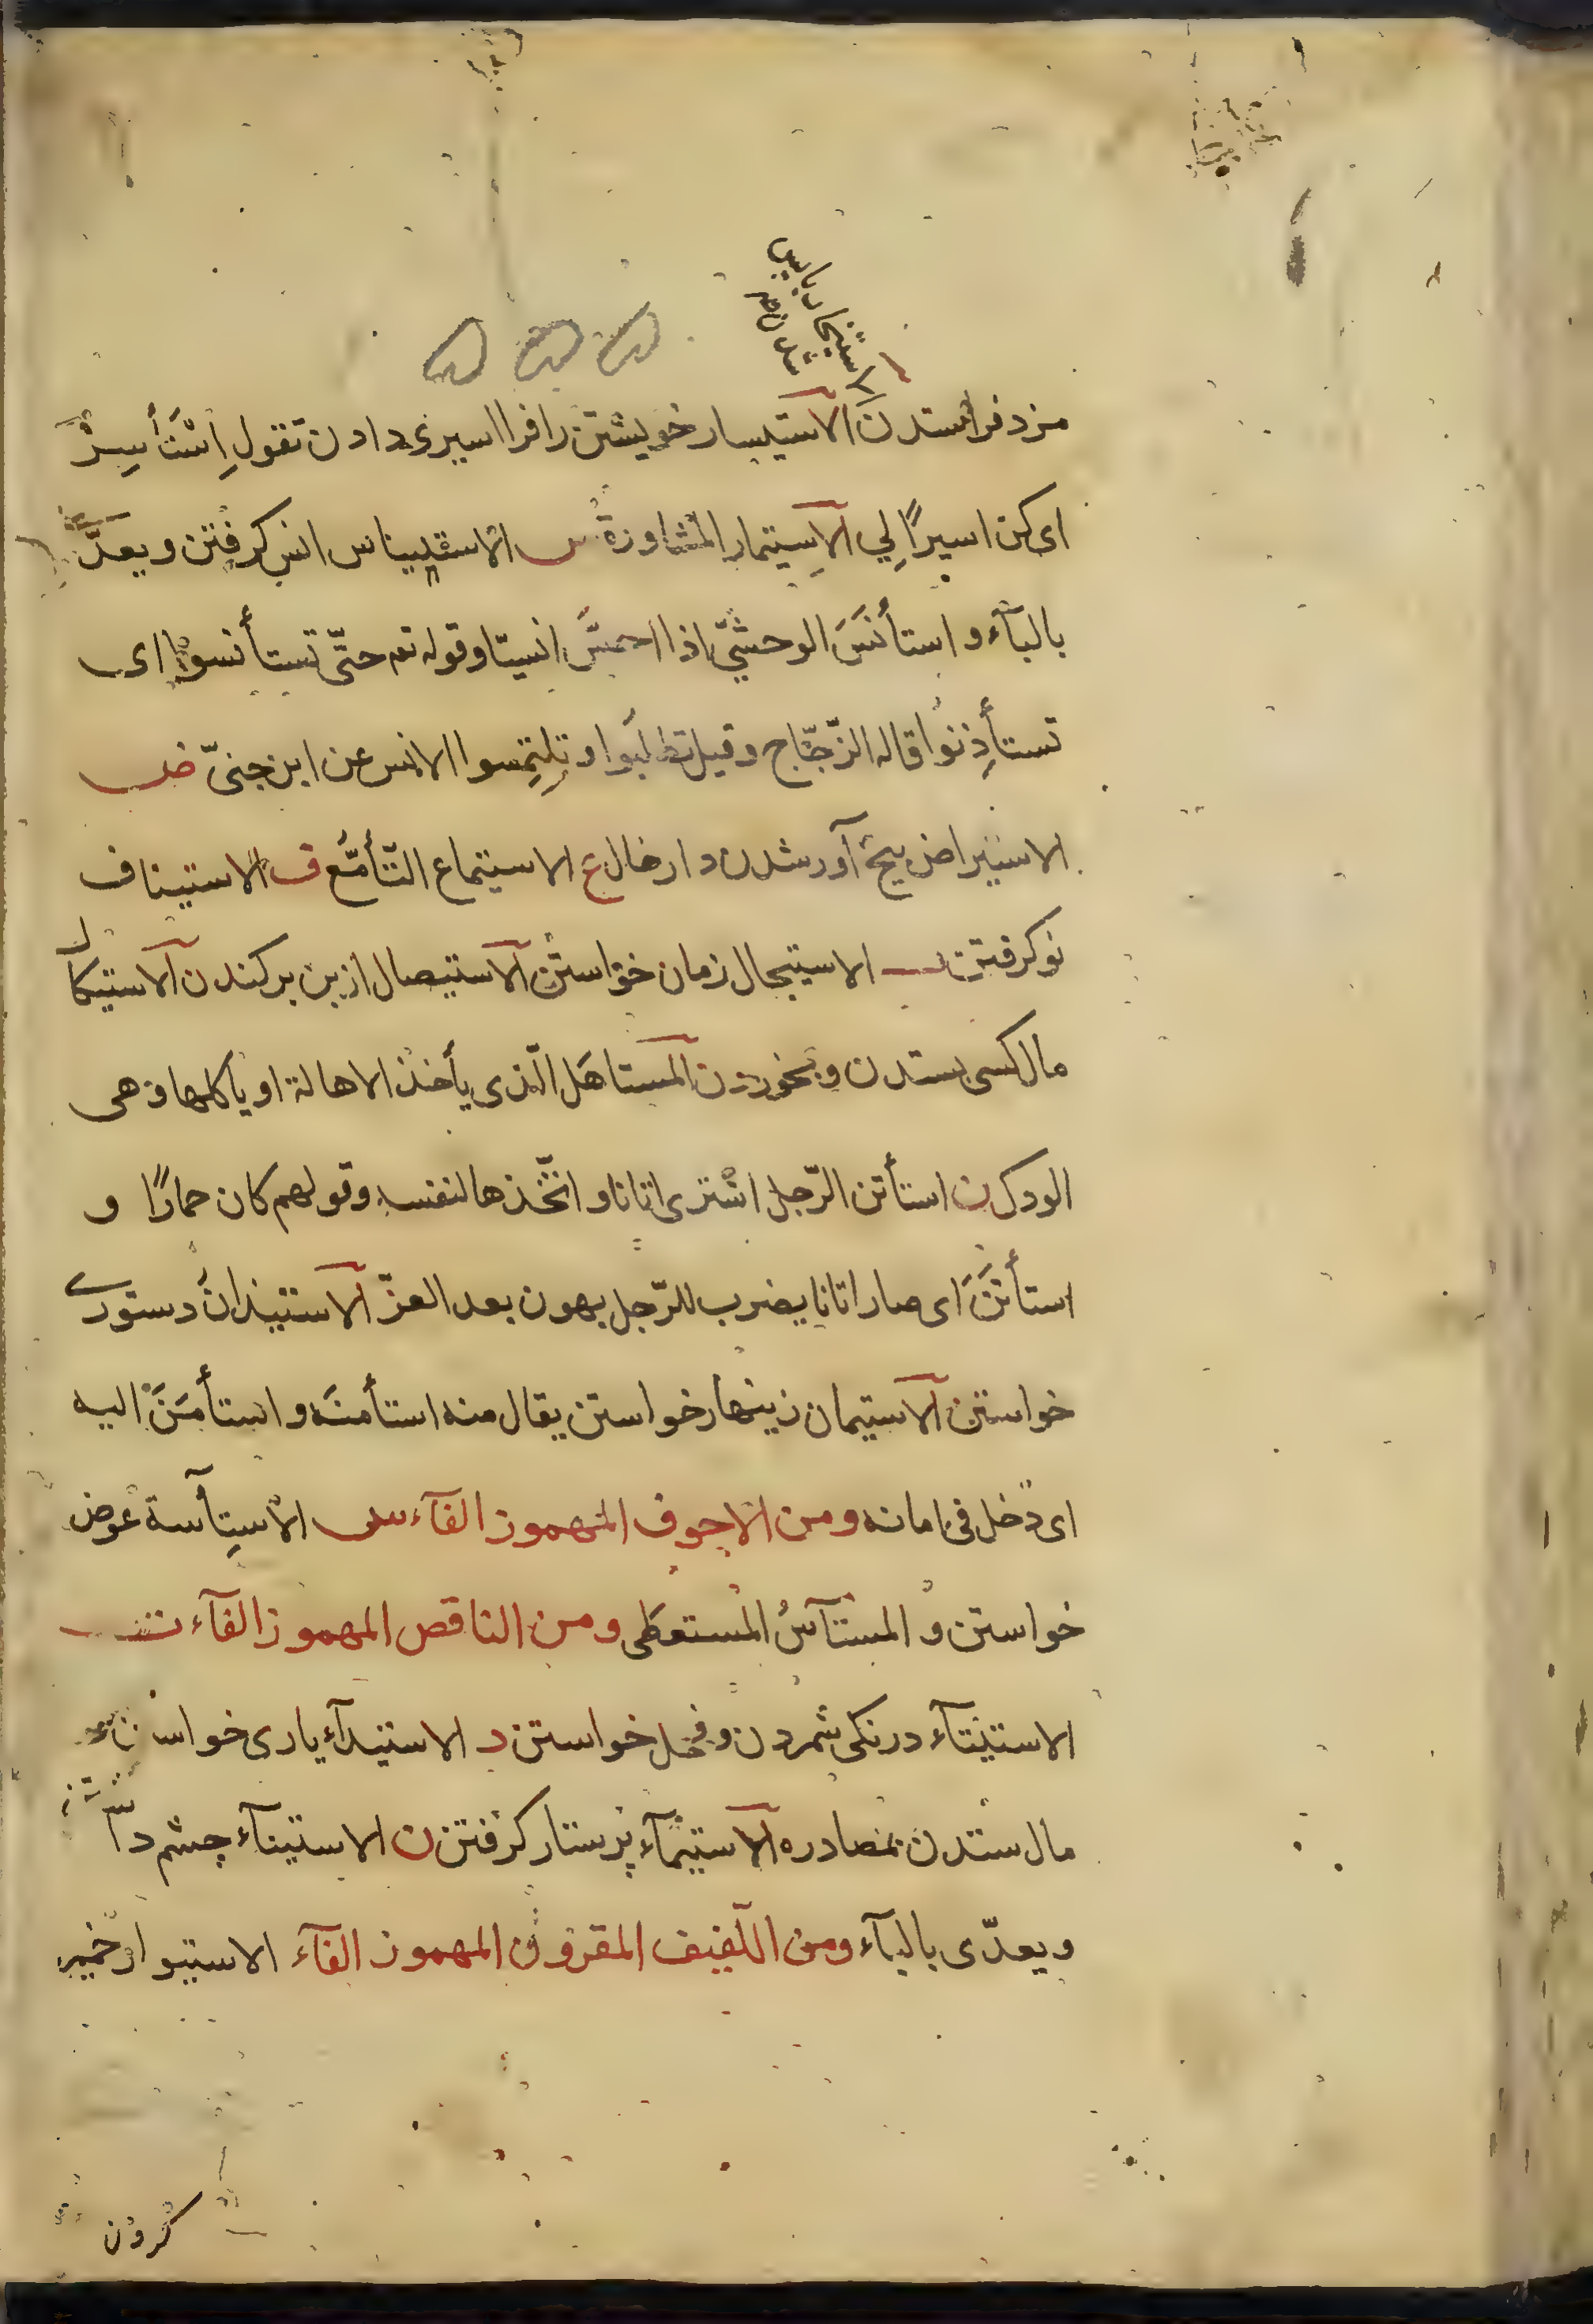 الاستیخار باپس
شدن
مزد فراستدن الاستیسار خویشتن را فرا اسیری دادن تقول اِسْتَأْسِرْ
ای کن اسیرًا لِي الاِستیمار المشاورة س الاستیناس انس کرفتن و یعدّی
بالبآء و استأنَسَ الوحشيّ اذا احسَّ انسیّا و قوله تعم حتّی تستأنسوا ای
تستأذِنوا قاله الزّجّاج و قیل تطلبوا و تلتمِسوا الانس عن ابن جنیّ ض
الاستیراض آور شدن دار خال ع الاستیماع التّأمّع ف الاستیناف
نو کرفتن ل الاستیجال زمان خواستن الاستیصال از بن برکندن الاستیکال
مال کسی بستدن و بخوردن المستاهل الّذی یأخذ الاهالة او یاکلها و هی
الودک ن استأتن الرّجل اشتری اتانا و اتّخذها لنفسه و قولهم کان حمارًا و
استأتَنَ ای صار اتانا یضرب للرّجل یهون بعد العزّ الاستیذان دستوری
خواستن الاستیمان زینهار خواستن یقال منه استأمنَه و استأمَنَ الیه
ای دخل فی امانه و من الاجوف المهموز الفآء س الاستِآسة عوض
خواستن و المستآسُ المستعطی و من الناقص المهموز الفآء ت
الاستیتآء درنکی شمردن و فحل خواستن د الاستیدآء یاری خواستن و
مال ستدن بمصادره الاستیمآء پرستار کرفتن ن الاستینآء چشم داشتن
و یعدّی بالبآء و من اللّفیف المقرون المهموز الفآء الاستیوا رخمیر
کردن